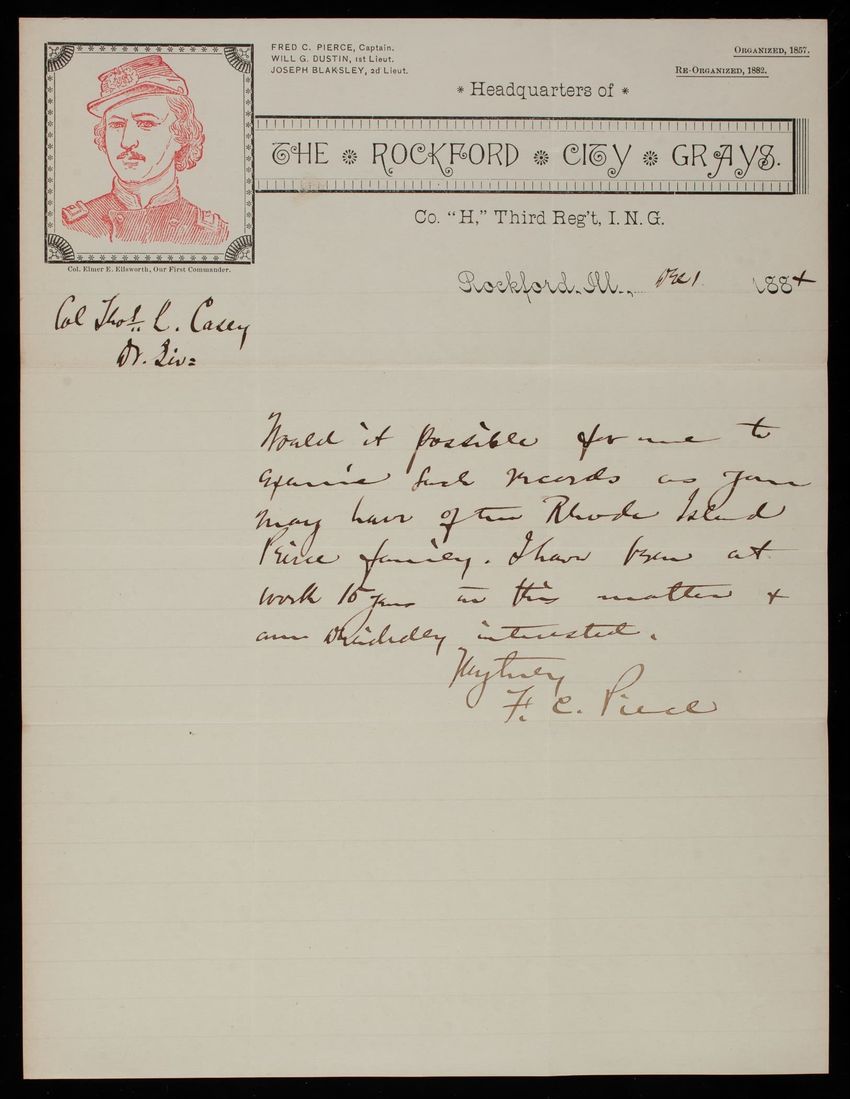 FRED C. PIERCE, Captain.
WILL G. DUSTIN, 1st Lieut.
JOSEPH BLAKSLEY, 2d Lieut.
ORGANIZED, 1857.
RE-ORGANIZED, 1882.
* Headquarters of *
THE ROCKFORD CITY GRAYS.
Co. "H," Third Reg't, I. N. G.
Col. Elmer E. Ellsworth, Our First Commander.
Rockford, Ill., Dec 1 1884
Col Thos. L. Casey
Dr. Sir =
Would it possible for me to
examine such records as you
may have of the Rhode Island
Peirce family. I have been at
work 15 years in this matter &
am decidedly interested.
Very truly
F. C. Pierce